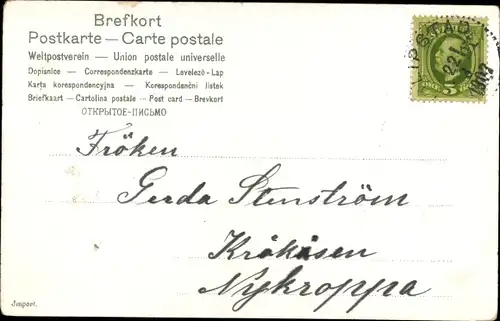 Brefkort
Postkarte — Carte postale
Weltpostverein — Union postale universelle
Dopisnice — Correspondenzkarte — Levelező-Lap
Karta korespondencyjna — Korespondenčni listek
Briefkaart — Cartolina postale — Post card — Brevkort
ОТКРЫТОЕ-ПИСЬМО
5
Fröken
Gerda Stenström
Kråkåsen
Nykroppa
Import.